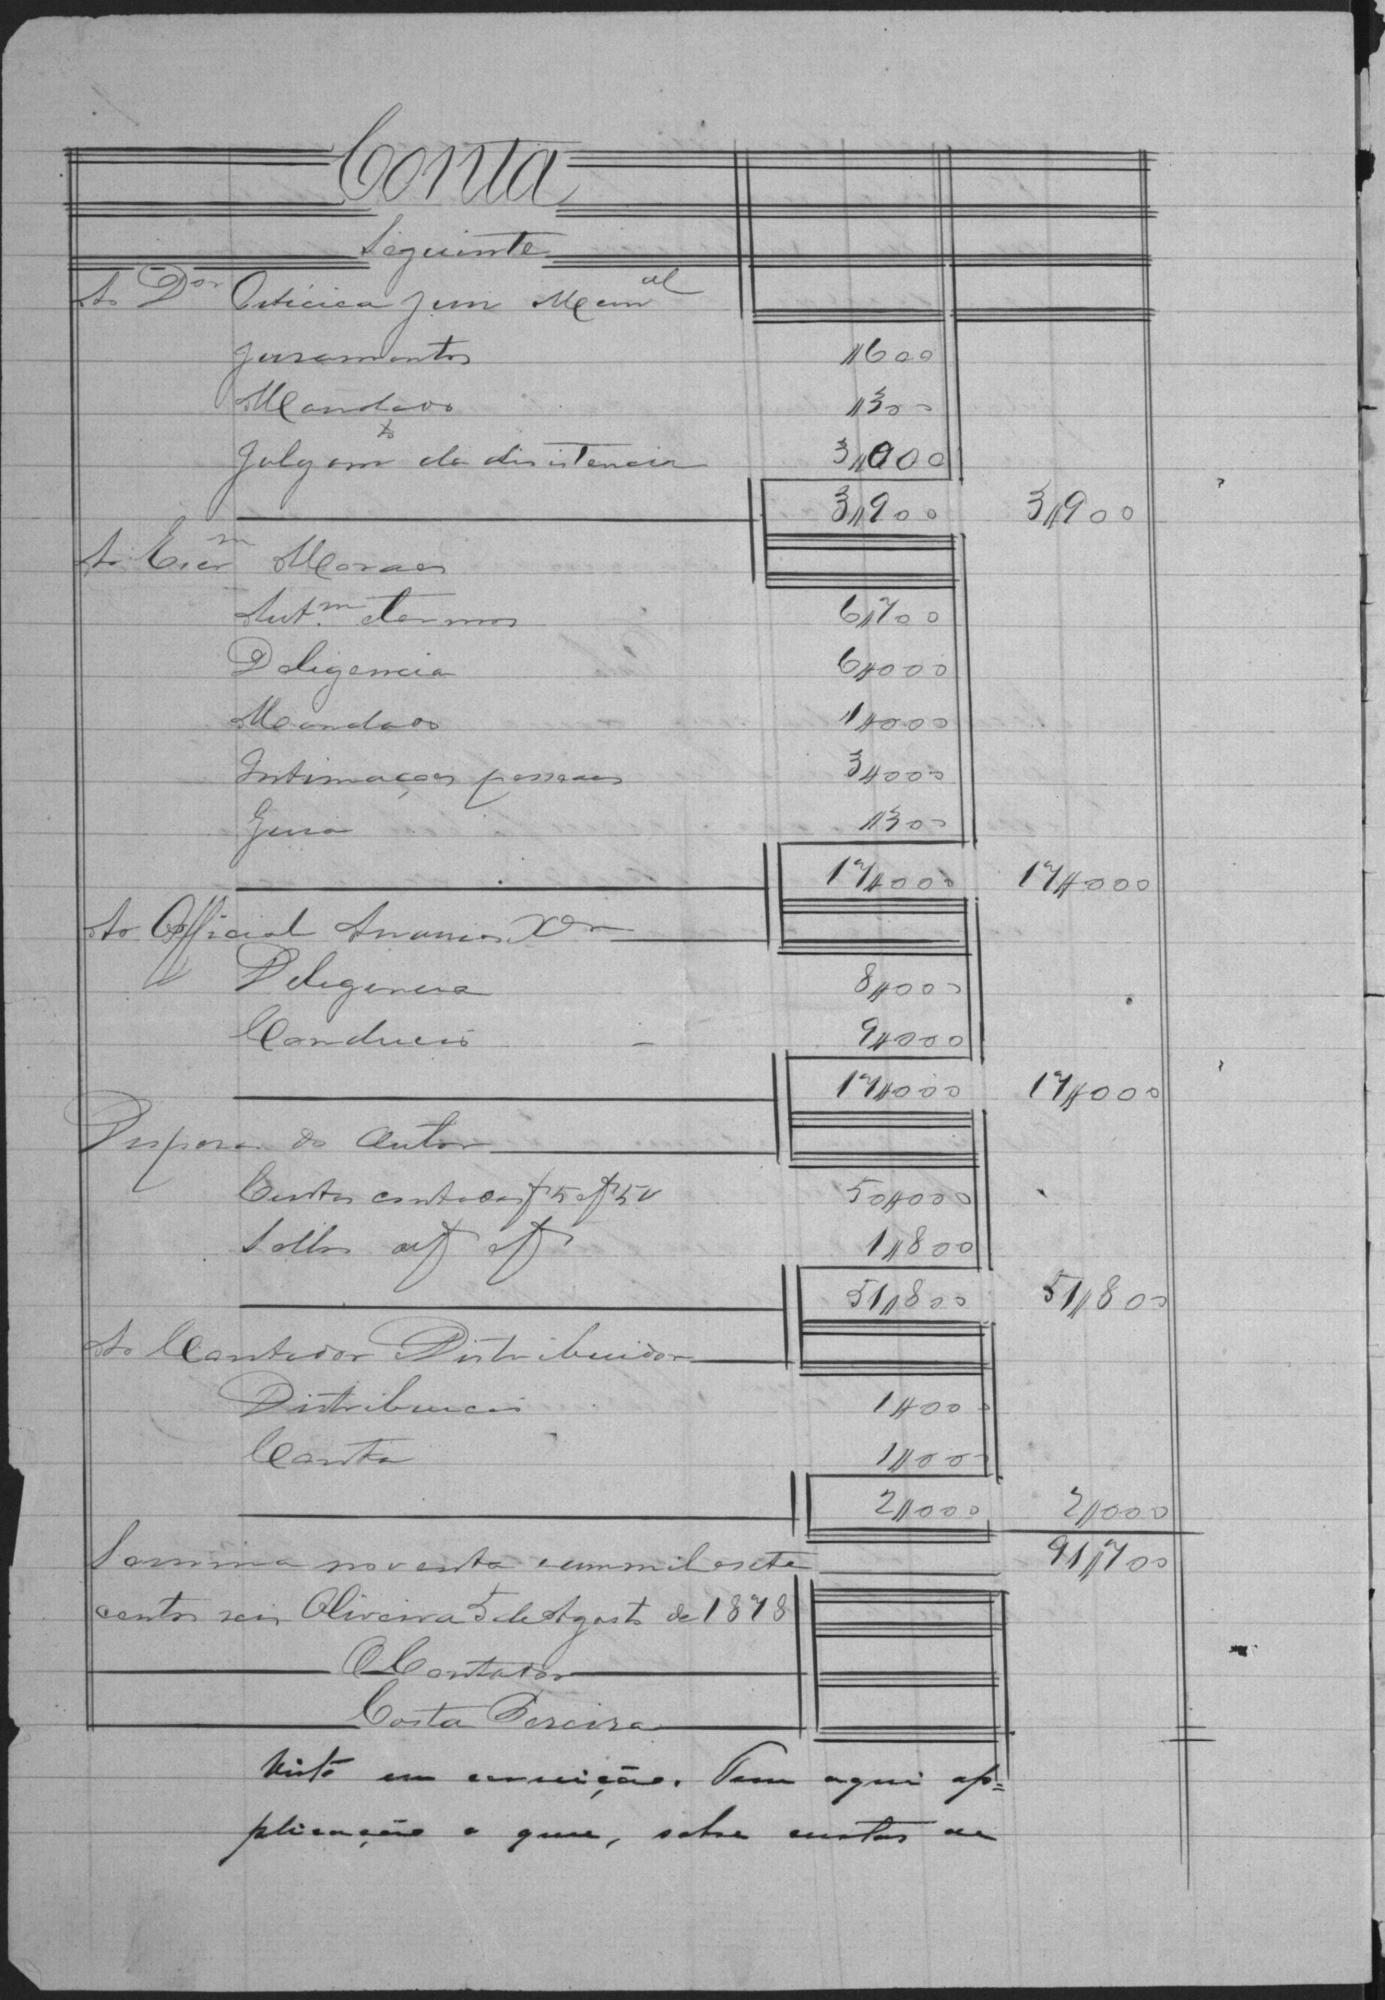 Conta
Seguinte
Ao Dor Oiticica Juiz Mcanal
Juramentos 600
Mandado 300
Julgamto da disistencia 3,000
3,900 3,900
Ao Escrm Moraes
Autm e termos 6,700
Deligencia 6,000
Mandado 1,000
Intimações pessoaes 3,000
Guia 300
17,000 17,000
Ao Official Xer
Deligencia 8,000
Conducão 9,000
17,000 17,000
Despesa do Autor
Custas contadas f 5 of 5v 50,000
Sellos af ef 1,800
51,800 51,800
Ao Contador Distribuidor
Distribuicão 1,000
Conta 1,000
2,000 2,000
Somma noventa e um mil e sete 91,700
centos reis Oliveira 5 de Agosto de 1878
O Contador
Costa Pereira
Visto em correição. Tem aqui ap=
plicação o que, sobre custas de